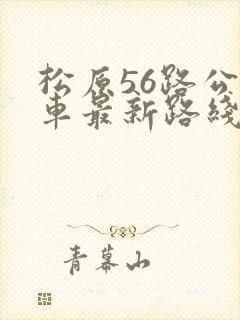 松原56路公
車最新路綫
青幕山